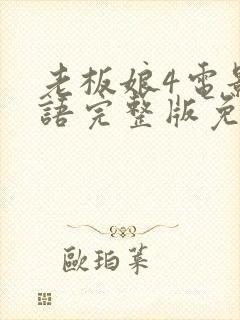 老板娘4電影
語完整版免
歐珀萊